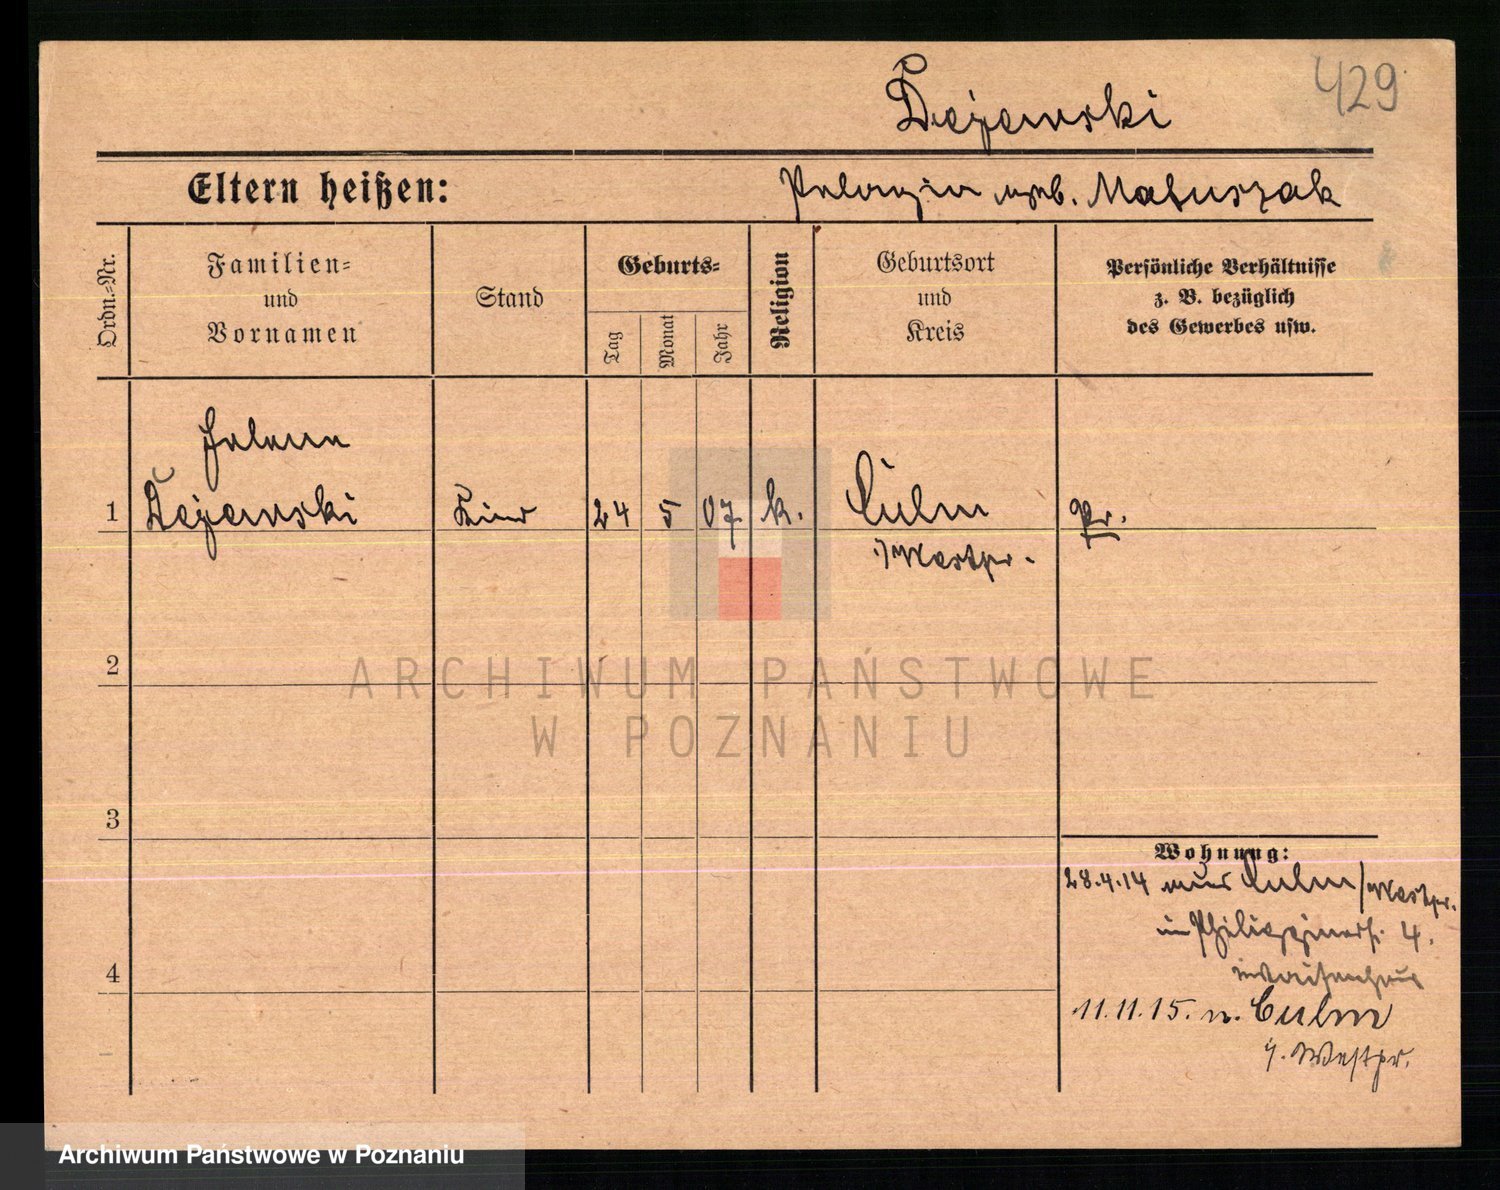 429
Dezewski
Eltern heißen:
Pelagia geb. Matuszak
Ordn.=Nr.
Familien=
und
Vornamen
Stand
Geburts=
Tag
Monat
Jahr
Religion
Geburtsort
und
Kreis
Persönliche Verhältnisse
z. B. bezüglich
des Gewerbes usw.
Helene
1 Dezewski Kind 24 5 07 k. Culm Pr.
i/Westpr.
2
ARCHIWUM PAŃSTWOWE
W POZNANIU
3
Wohnung:
28.4.14 aus Culm/Westpr.
4.
4
11.11.15. n. Culm
i. Westpr.
Archiwum Państwowe w Poznaniu